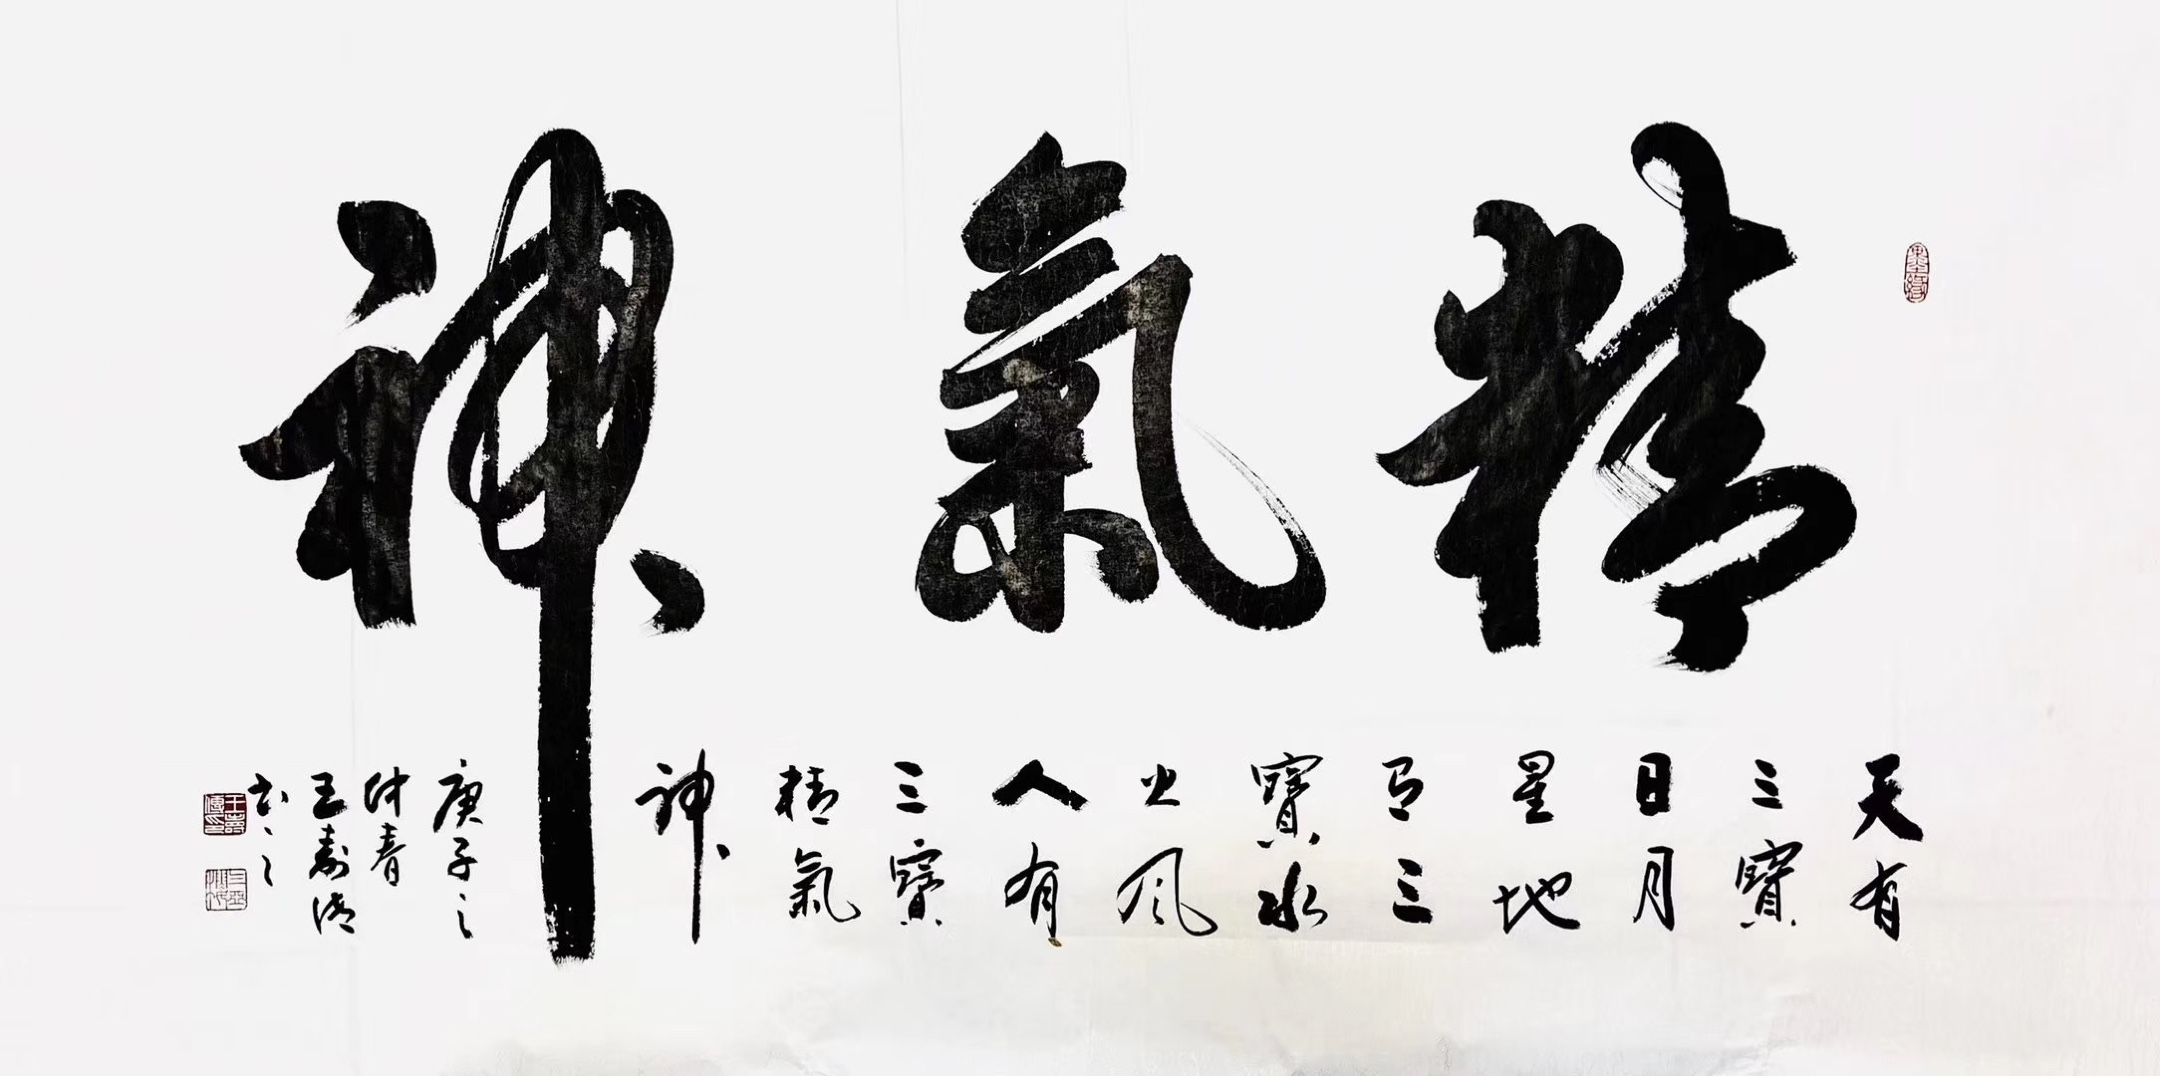 精氣神
天有
三寶
日月
星地
有三
寶水
火風
人有
三寶
精氣
神
庚子之
仲春
王壽
书之